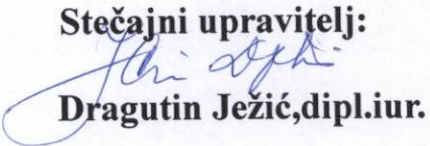 Stečajni upravitelj:
Dragutin Ježić,dipl.iur.